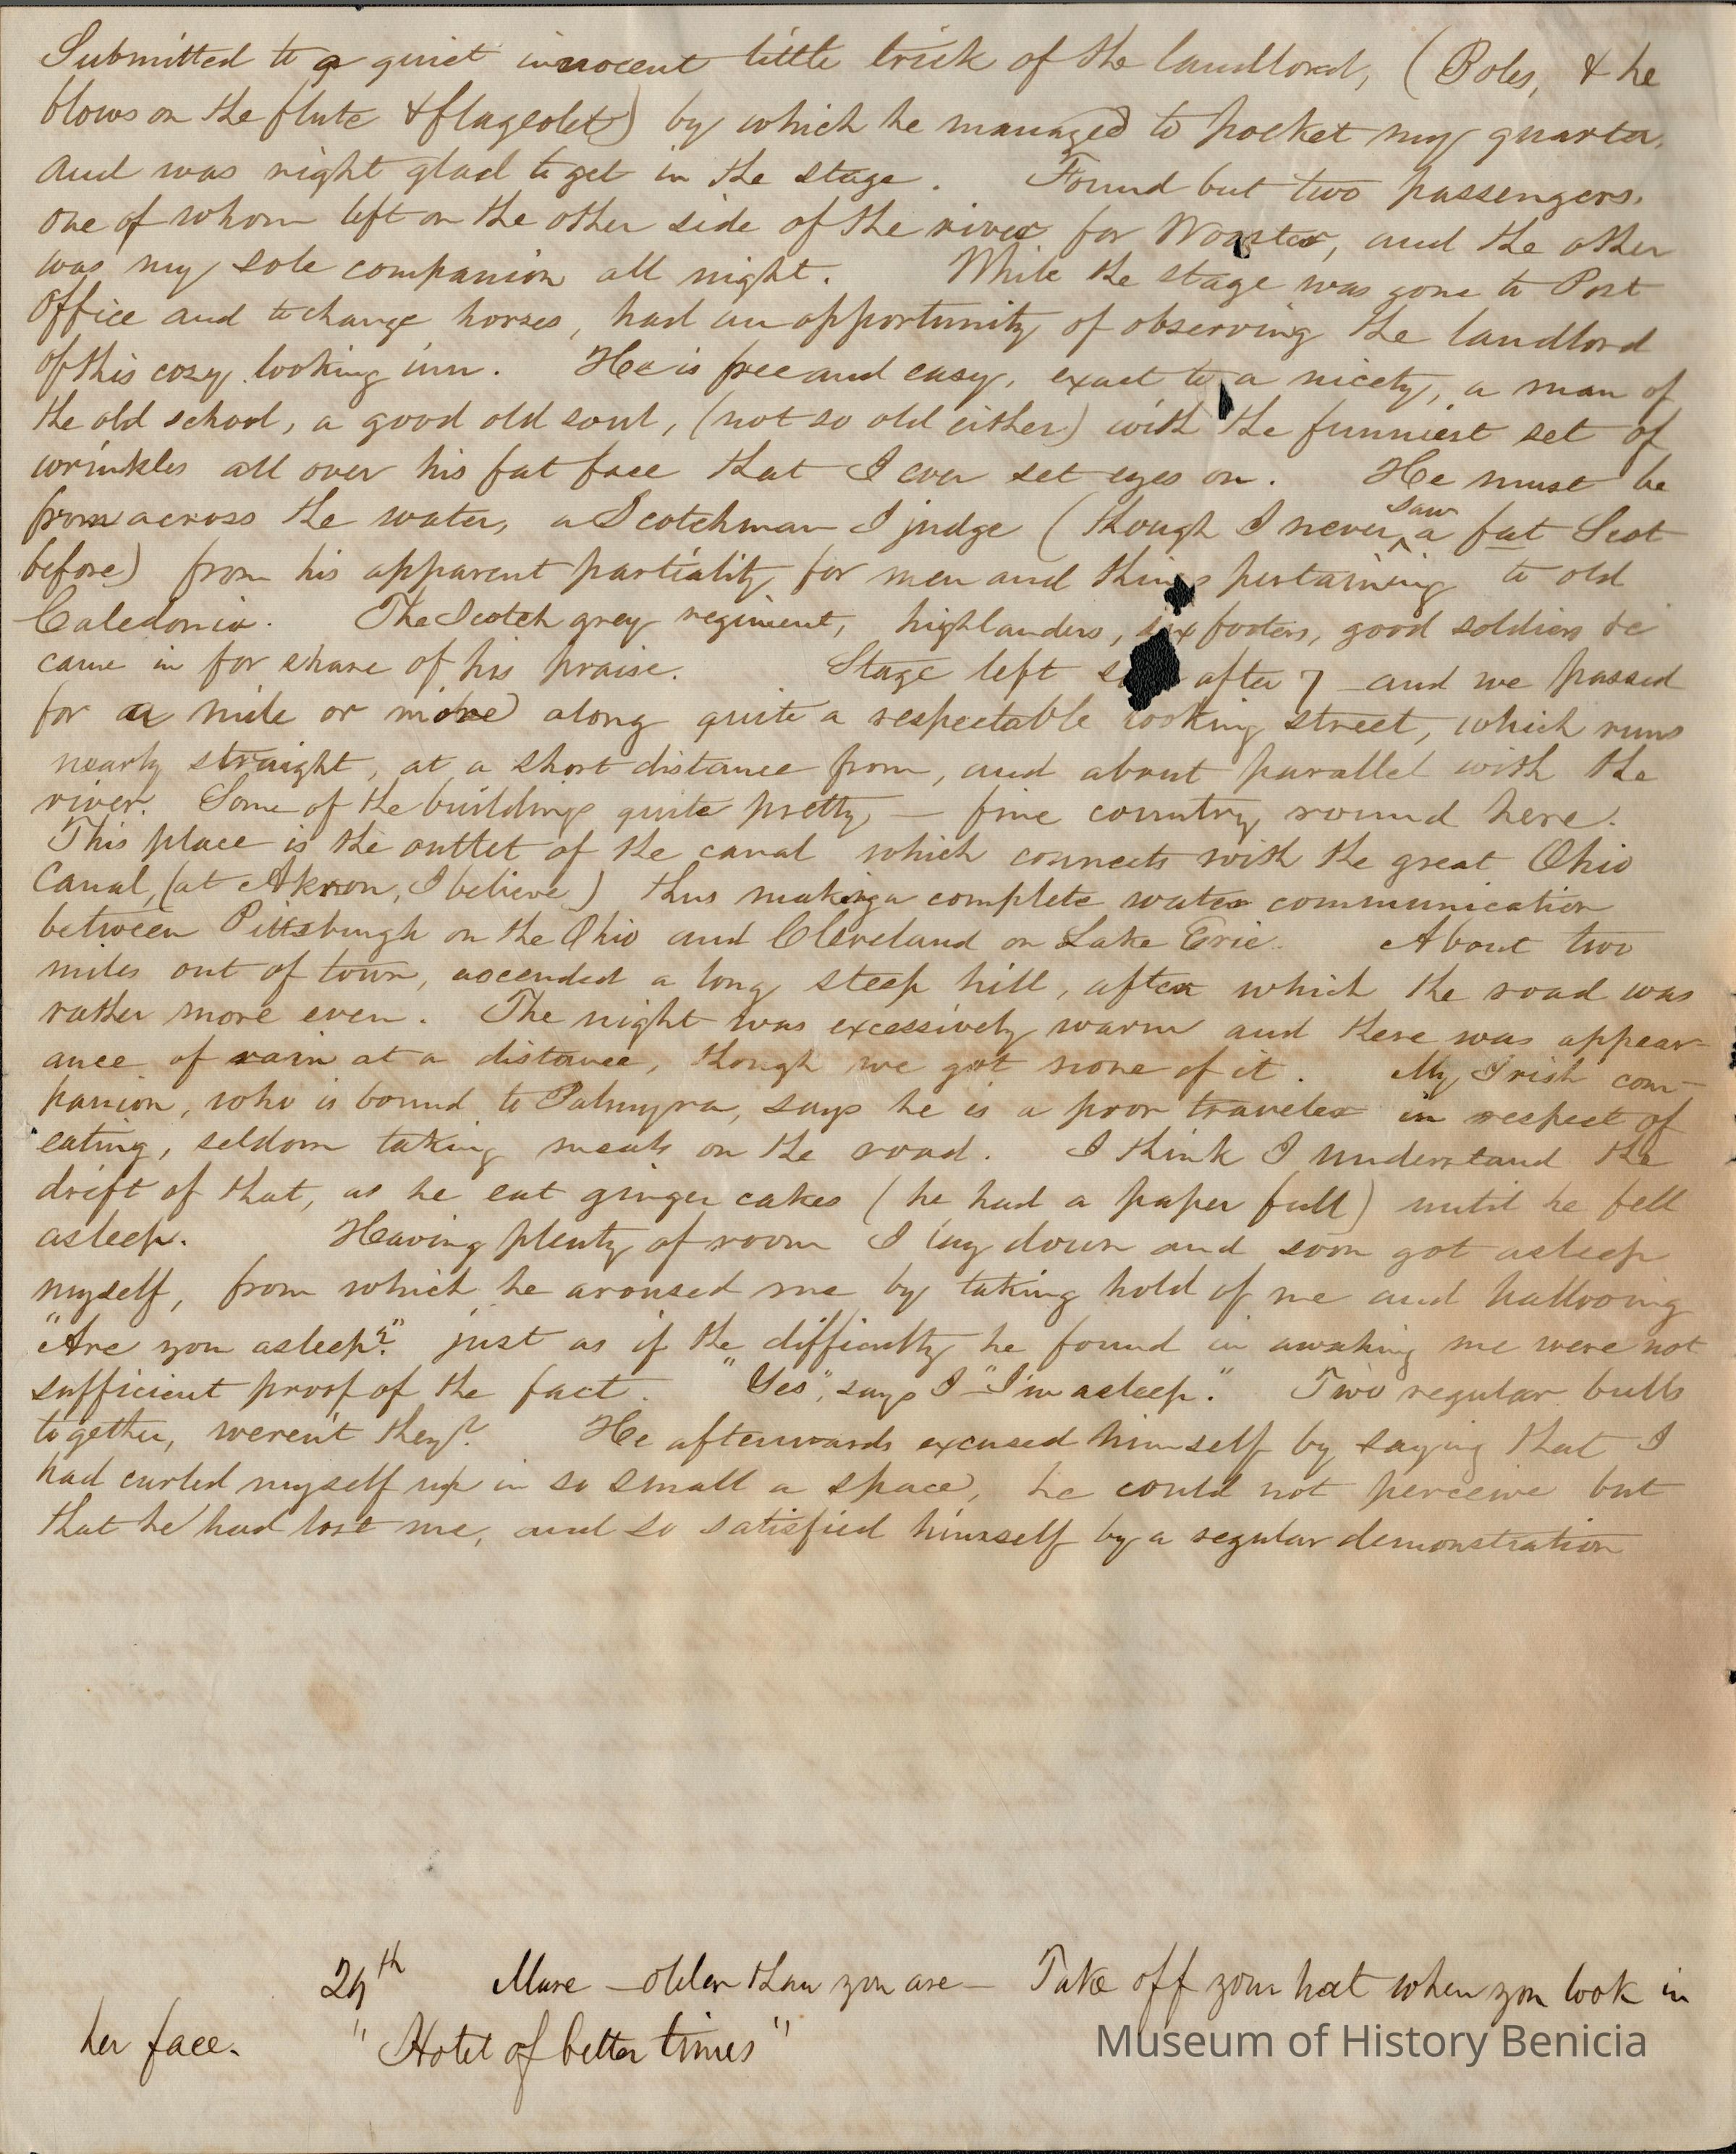 Submitted to a quiet innocent little trick of the landlord, (Boles, & he
blows on the flute & flageolet) by which he managed to pocket my quarter,
and was right glad to get in the stage. Found but two passengers,
one of whom left on the other side of the river for Wooster, and the other
was my sole companion all night. While the stage was gone to Post
Office and to change horses, had an opportunity of observing the landlord
of this cozy looking inn. He is free and easy, exact to a nicety, a man of
the old school, a good old soul, (not so old either) with the funniest set of
wrinkles all over his fat face that I ever set eyes on. He must be
from across the water, a Scotchman I judge (though I never saw a fat Scot
before) from his apparent partiality for men and things pertaining to old
Caledonia. The Scotch grey regiment, highlanders, six footers, good soldiers &c
came in for share of his praise. Stage left after 7 and we passed
for a mile or more along quite a respectable looking street, which runs
nearly straight, at a short distance from, and about parallel with the
river. Some of the buildings quite pretty — fine country round here.
This place is the outlet of the canal which connects with the great Ohio
Canal, (at Akron, I believe) thus making a complete water communication
between Pittsburgh on the Ohio and Cleveland on Lake Erie. About two
miles out of town, ascended a long steep hill, after which the road was
rather more even. The night was excessively warm and there was appear-
ance of rain at a distance, though we got none of it. My Irish com-
panion, who is bound to Palmyra, says he is a poor traveler in respect of
eating, seldom taking meals on the road. I think I understand the
drift of that, as he eat ginger cakes (he had a paper full) until he fell
asleep. Having plenty of room I lay down and soon got asleep
myself, from which he aroused me by taking hold of me and hallooing
"Are you asleep?" just as if the difficulty he found in awaking me were not
sufficient proof of the fact. "Yes", says I "I'm asleep." Two regular bulls
together, weren't they? He afterwards excused himself by saying that I
had curled myself up in so small a space, he could not perceive but
that he had lost me, and so satisfied himself by a regular demonstration
29th Mare — older than you are — Take off your hat when you look in
her face. "Hotel of better times"
Museum of History Benicia